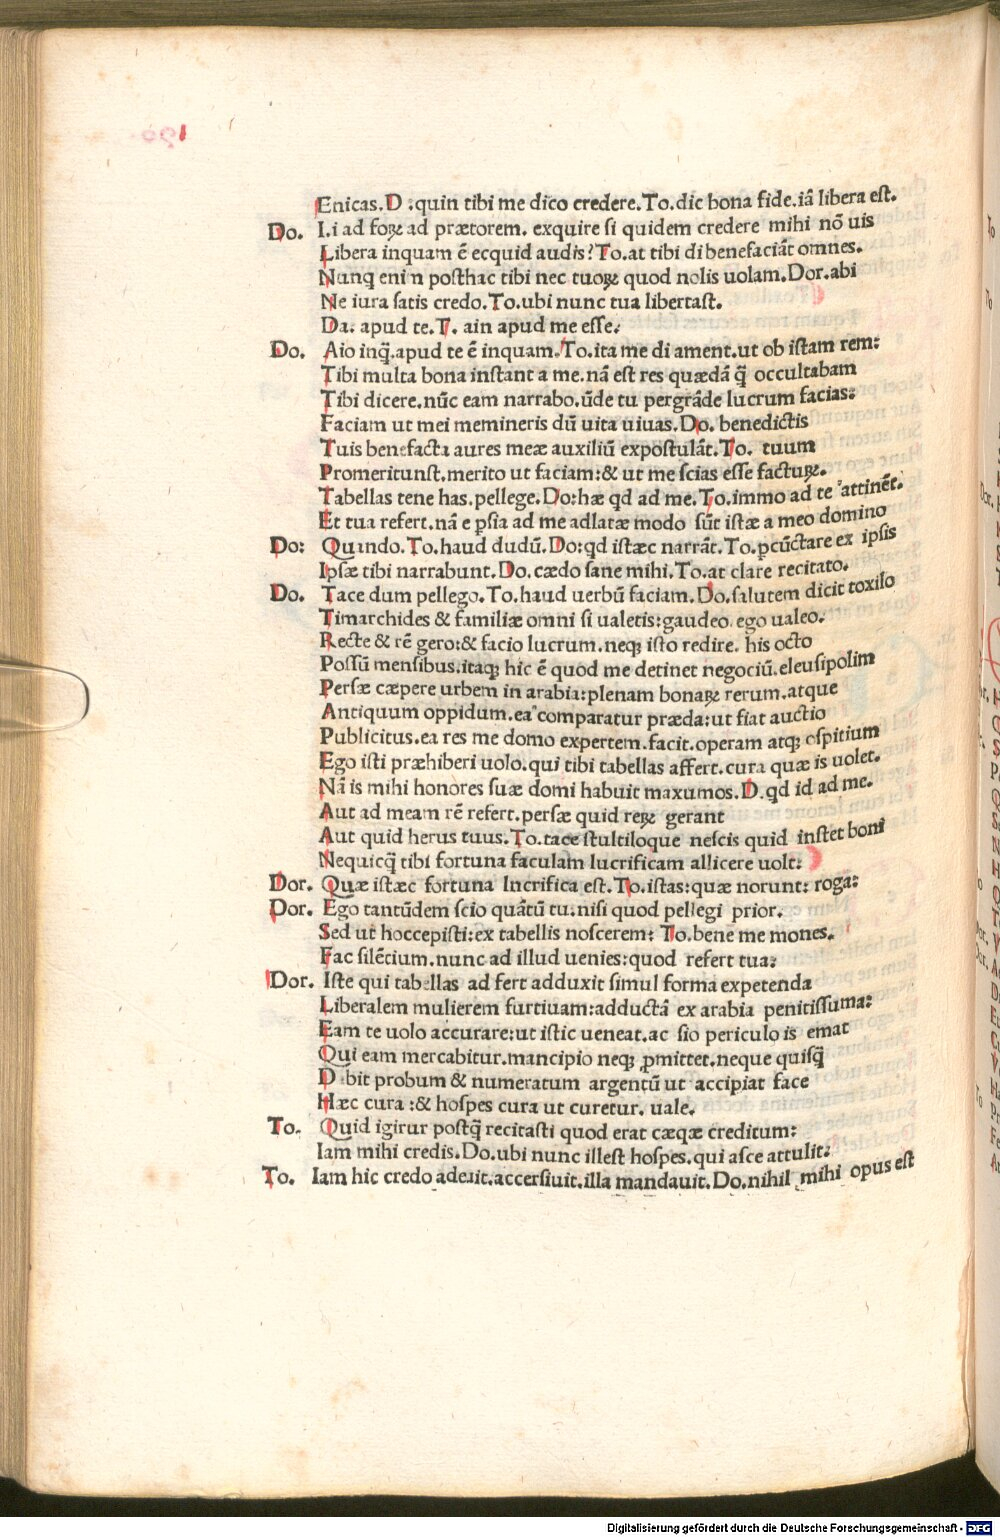 Enicas.D .quin tibi me dico credere.To.dic bona fide.iā libera est.
Do. I.i ad foꝝ ad prætorem. exquire si quidem credere mihi nō uis
Libera inquam ē ecquid audis?To.at tibi di benefaciāt omnes.
Nunq̄ enim posthac tibi nec tuoꝝ quod nolis uolam.Dor.abi
Ne iura satis credo.To.ubi nunc tua libertast.
Da. apud te.T. ain apud me esse.
Do. Aio inq̄.apud te ē inquam.To.ita me di ament.ut ob istam rem:
Tibi multa bona instant a me.nā est res quædā q̄ occultabam
Tibi dicere.nūc eam narrabo.ūde tu pergrāde lucrum facias:
Faciam ut mei memineris dū uita uiuas.Do. benedictis
Tuis benefacta aures meæ auxiliū expostulāt.To. tuum
Promeritunst.merito ut faciam:& ut me scias esse factuꝝ.
Tabellas tene has.pellege.Do:hæ qd ad me.To.immo ad te attinēt.
Et tua refert.nā e ꝑsia ad me adlatæ modo sūt istæ a meo domino
Do: Quando.To.haud dudū.Do:qd istæc narrāt.To.ꝑcūctare ex ipsis
Ipsæ tibi narrabunt.Do.cædo sane mihi.To.at clare recitato.
Do. Tace dum pellego.To.haud uerbū faciam.Do.salutem dicit toxilo
Timarchides & familiæ omni si ualetis:gaudeo. ego ualeo.
Recte & rē gero:& facio lucrum.neqꝫ isto redire. his octo
Possū mensibus.itaqꝫ hic ē quod me detinet negociū.eleusipolim
Persæ cæpere urbem in arabia:plenam bonaꝝ rerum.atque
Antiquum oppidum.ea comparatur præda:ut fiat auctio
Publicitus.ea res me domo expertem.facit.operam atqꝫ ospitium
Ego isti præhiberi uolo.qui tibi tabellas affert.cura quæ is uolet.
Nā is mihi honores suæ domi habuit maxumos.D.qd id ad me.
Aut ad meam rē refert.persæ quid reꝝ gerant
Aut quid herus tuus.To.tace stultiloque nescis quid instet boni
Nequicq̄ tibi fortuna faculam lucrificam allicere uolt:
Dor. Quæ istæc fortuna lncrifica est.To.istas:quæ norunt: roga:
Dor. Ego tantūdem scio quātū tu.nisi quod pellegi prior.
Sed ut hoccepisti:ex tabellis noscerem: To.bene me mones.
Fac silētium.nunc ad illud uenies:quod refert tua:
Dor. Iste qui tabellas ad fert adduxit simul forma expetenda
Liberalem mulierem furtiuam:adductā ex arabia penitissuma:
Eam te uolo accurare:ut istic ueneat.ac sio periculo is emat
Qui eam mercabitur.mancipio neqꝫ ꝓmittet.neque quisq̄
D bit probum & numeratum argentū ut accipiat face
Hæc cura :& hospes cura ut curetur. uale.
To. Quid igirur postq̄ recitasti quod erat cæqæ creditum:
Iam mihi credis.Do.ubi nunc illest hospes.qui asce attulit:
To. Iam hic credo aderit.accersiuit.illa mandauit.Do.nihil mihi opus est
Digitalisierung gefördert durch die Deutsche Forschungsgemeinschaft - DFG